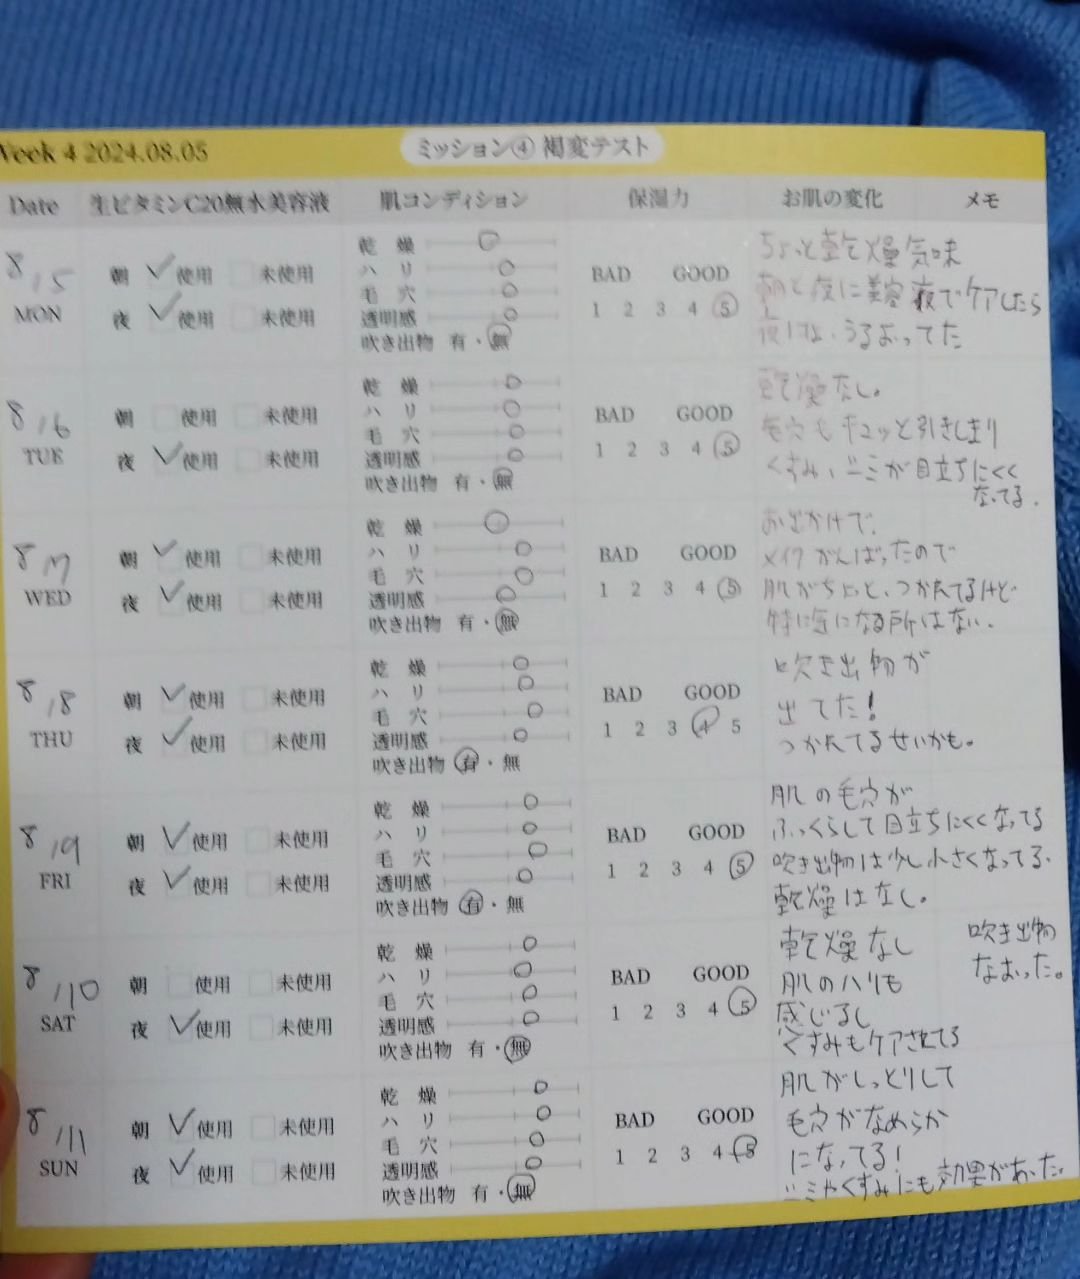 Week 4 2024.08.05 ミッション④ 褐変テスト
Date 生ビタミンC20無水美容液 肌コンディション 保湿力 お肌の変化 メモ
8/5
MON
朝 使用 未使用
夜 使用 未使用
乾燥
ハリ
毛穴
透明感
吹き出物 有・無
BAD GOOD
1 2 3 4 5
ちょっと乾燥気味
朝と夜に美容液でケアしたら
夜には、うるおってた
8/6
TUE
朝 使用 未使用
夜 使用 未使用
乾燥
ハリ
毛穴
透明感
吹き出物 有・無
BAD GOOD
1 2 3 4 5
乾燥なし。
毛穴もキュッと引きしまり
くすみ、シミが目立ちにくく
なってる。
8/7
WED
朝 使用 未使用
夜 使用 未使用
乾燥
ハリ
毛穴
透明感
吹き出物 有・無
BAD GOOD
1 2 3 4 5
お出かけで、
メイクがんばったので
肌がちょっと、つかれてるけど
特に気になる所はない。
8/8
THU
朝 使用 未使用
夜 使用 未使用
乾燥
ハリ
毛穴
透明感
吹き出物 有・無
BAD GOOD
1 2 3 4 5
吹き出物が
出てた!
つかれてるせいかも。
8/9
FRI
朝 使用 未使用
夜 使用 未使用
乾燥
ハリ
毛穴
透明感
吹き出物 有・無
BAD GOOD
1 2 3 4 5
肌の毛穴が
ふっくらして目立ちにくくなってる
吹き出物は少し小さくなってる。
乾燥はなし。
8/10
SAT
朝 使用 未使用
夜 使用 未使用
乾燥
ハリ
毛穴
透明感
吹き出物 有・無
BAD GOOD
1 2 3 4 5
乾燥なし
肌のハリも
感じるし
くすみもケアされてる
吹き出物
なおった。
8/11
SUN
朝 使用 未使用
夜 使用 未使用
乾燥
ハリ
毛穴
透明感
吹き出物 有・無
BAD GOOD
1 2 3 4 5
肌がしっとりして
毛穴がなめらか
になってる!
シミやくすみにも効果があった。